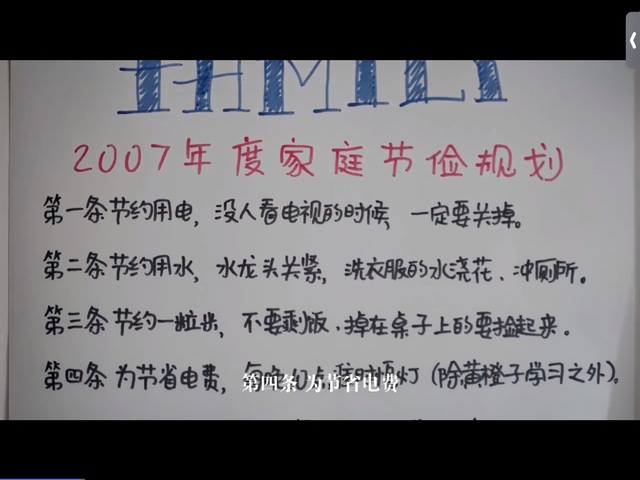 FAMILY
2007年度家庭节俭规划
第一条节约用电，没人看电视的时候，一定要关掉。
第二条节约用水，水龙头关紧，洗衣服的水浇花、冲厕所。
第三条节约一粒米，不要剩饭，掉在桌子上的要捡起来。
第四条 为节省电费，每晚 灯（除黄橙子学习之外）。
第四条 为节省电费